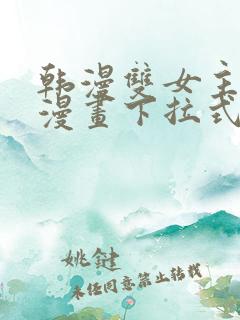 韩漫雙女主
漫畫下拉式
姚鍵
未任同意禁止转载